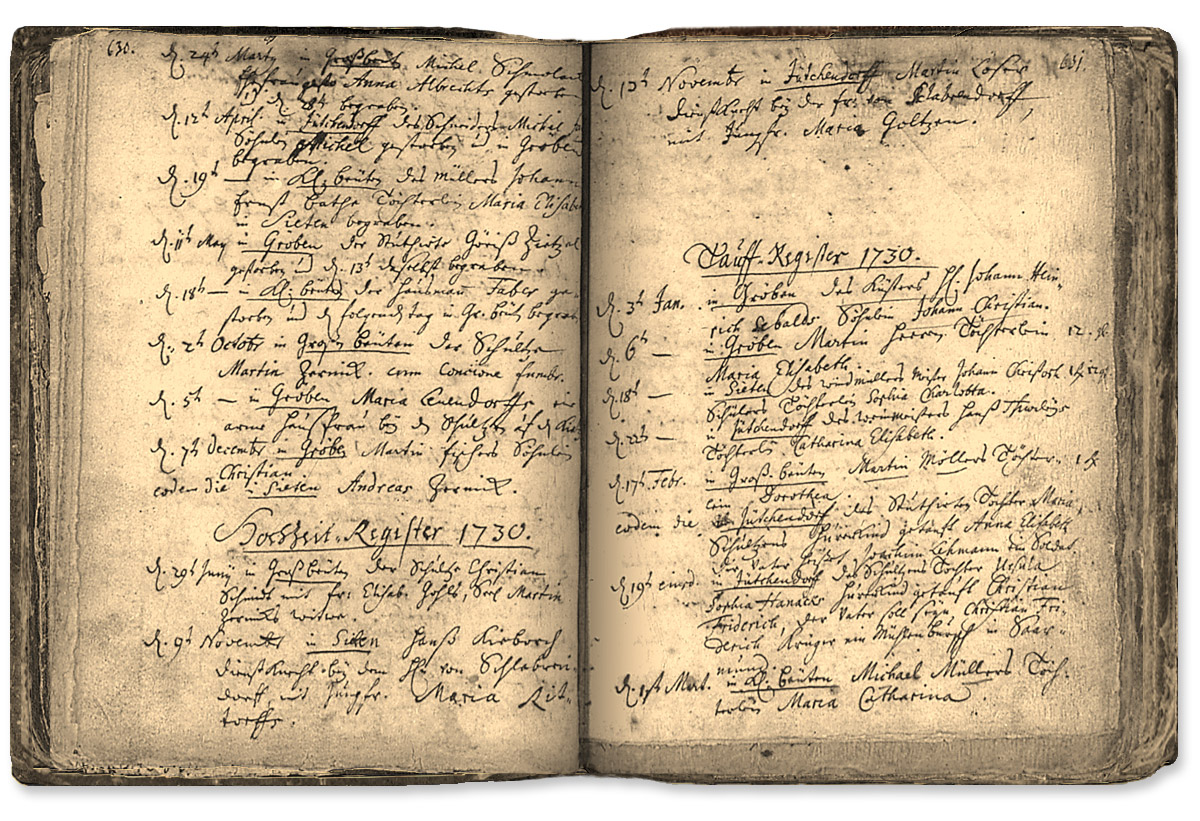 630.
d. 24t Marty in Großbeuten Michel
Ehefrau Anna Albrechts gestorben
d. 28t begraben.
d. 12t April. in Jütchendorff des Schneiders Michel
Söhnlein Michel gestorben und in Gröben
begraben.
d. 19t — in Kl. beuten des müllers Johann
Ernst Töchterlein Maria Elisabeth
in Sieten begraben.
d. 11t May in Gröben der
gestorben und d. 13t daselbst begraben
d. 18t — in Kl. beuten der hausmann Faber ge-
storben und d. folgenden tag in Gr. beuten begraben
d. 2t Octobr in Großen beuten der Schultze
Martin Zernick. cum Concione funebr.
d. 5t — in Gröben Maria ein
arme haußfrau bey den Schultzen auf
d. 7t Decembr in Gröben Martin fischers Söhnlein
Christian.
eodem die in Sieten Andreas Zernick.
Hochzeit-Register 1730.
d. 29t Juny in Großbeuten der Schultze Christian
Schmidt mit fr. Elisab. Sehl. Martin
Zernicks witwe.
d. 9t Novembr in Sieten Hanß Kieborch
dienstknecht bey dem H. von Schlabren-
dorff mit Jungfr. Maria Lit-
torffs.
631
d. 13t Novembr in Jütchendorff Martin Löser
dienstknecht bey der fr. von Schlabrendorff
mit Jungfr. Maria Goltzen.
Tauff-Register 1730.
d. 3t Jan. in Gröben des Küsters H. Johann Hein-
rich Sebalds Söhnlein Johann Christian.
d. 6t — in Gröben Martin Herrn Töchterlein 12.
Maria Elisabeth.
d. 18t — in Sieten des windmüllers Johann Christoph
Schülers Töchterlein Sophia Charlotta.
d. 22t — in Jütchendorff des weinmeisters Hanß
Töchterlein Catharina Elisabeth.
d. 17t Febr. in Groß-beuten Martin Möllers Töchter-
lein Dorothea.
eodem die in Jütchendorf des Tochter Maria
Schultzens hurenkind getauft Anna Elisabeth
der Vater heißt Joachim Lehmann ein Soldat
d. 19t eiusd. in Jütchendorf des Schultzen Tochter Ursula
Sophia hurenkind getauft Christian
Friderich, der Vater soll sein Christian Fri-
derich Krüger ein Mühlenbursch in Saar-
mund.
d. 1st Mart. in Kl. beuten Michael Müllers Töch-
terlein Maria Catharina.